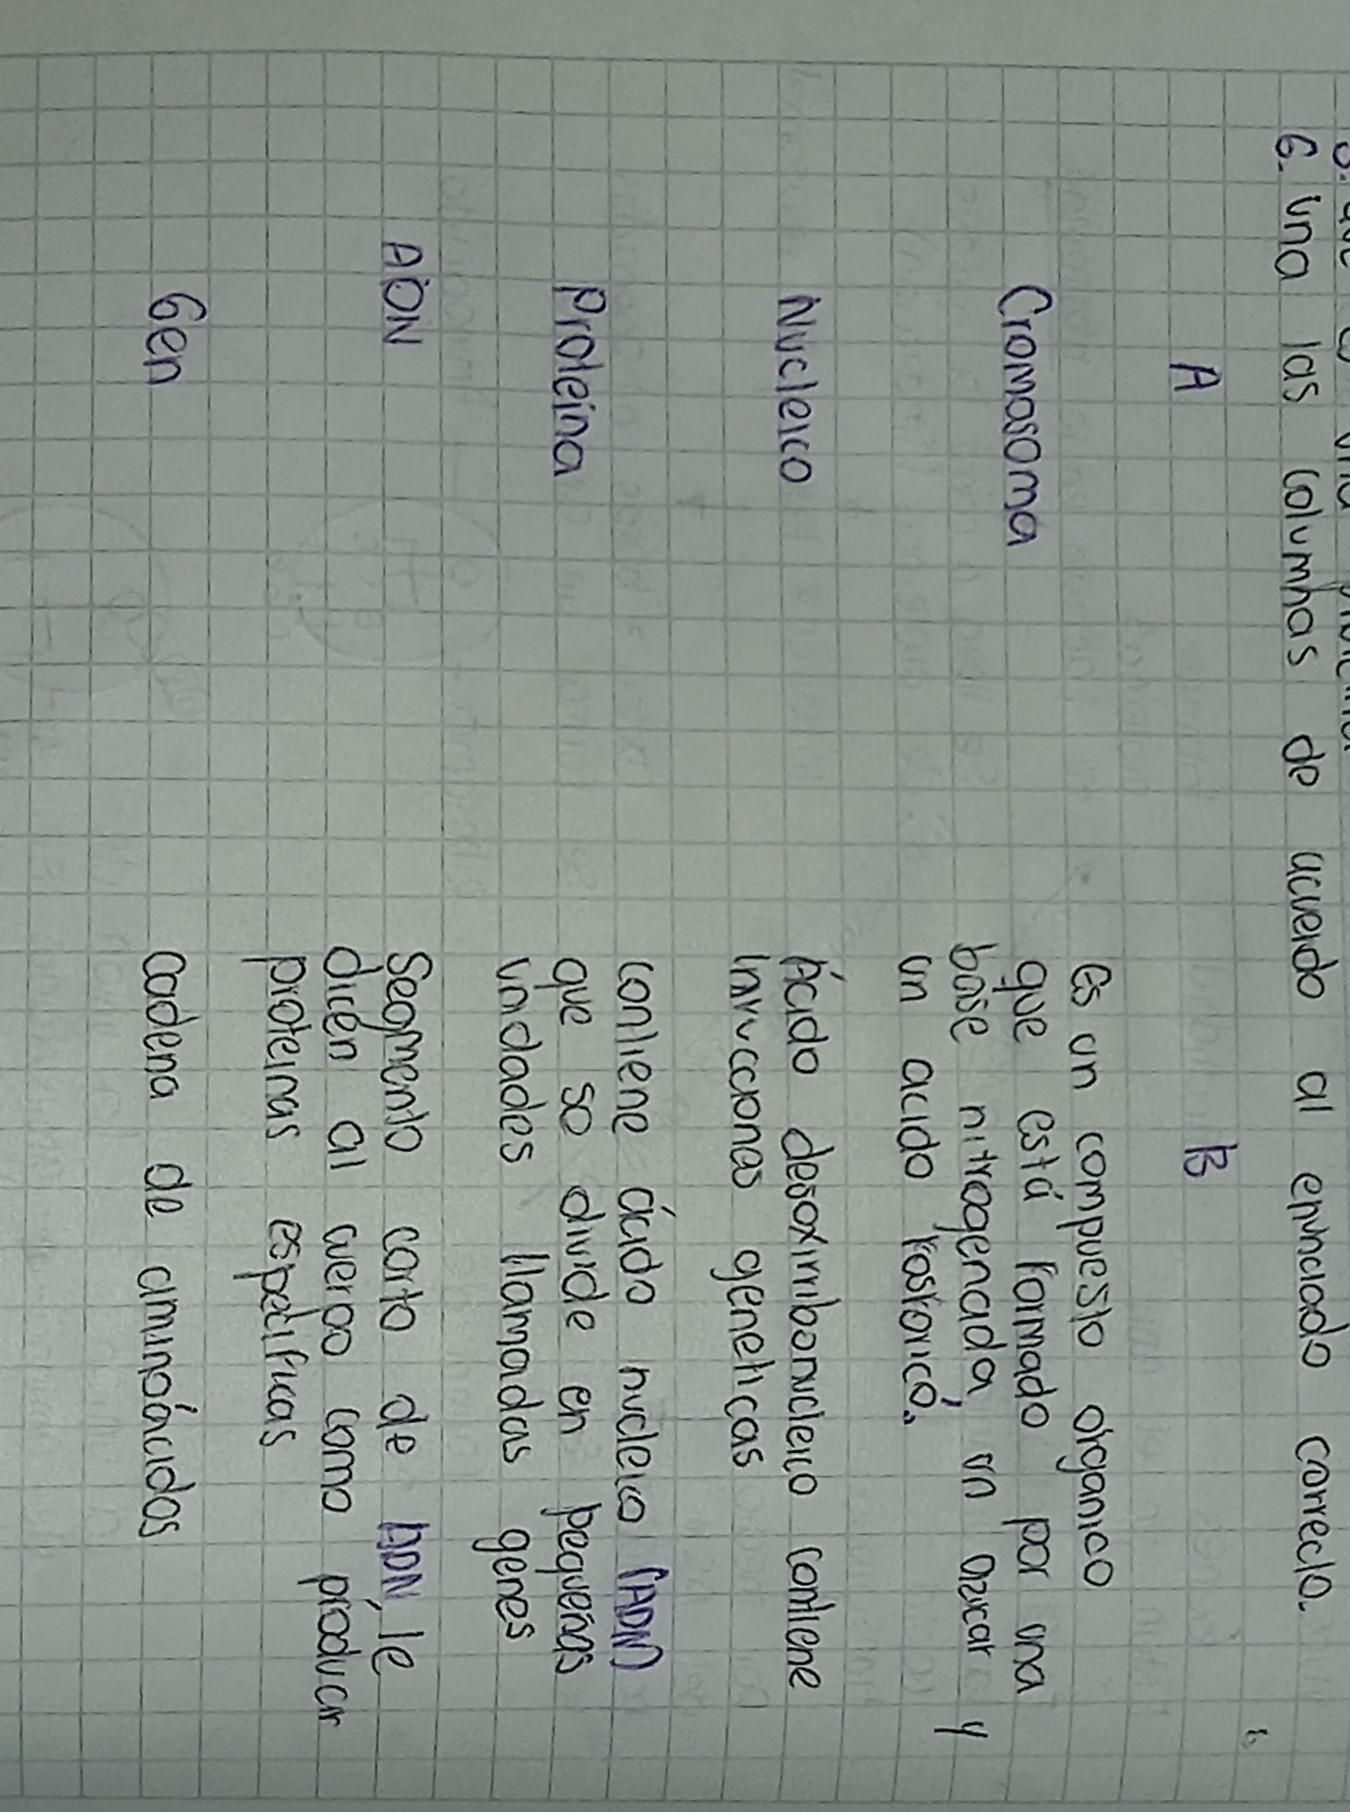 6. Una las columnas de acuerdo al enunciado correcto.
A B
Cromasoma
es un compuesto organico
que está formado por una
base nitrogenada, un azucar y
un acido fosforico.
Nucleico
Ácido desoximbonucleico contiene
inrucciones geneticas
Proteina
contiene ácido nucleico (ADN)
que se divide en pequeñas
unidades llamadas genes
ADN
Segmento corto de ADN, le
dicen al cuerpo como producir
proteinas especificas
Gen
Cadena de aminoácidos